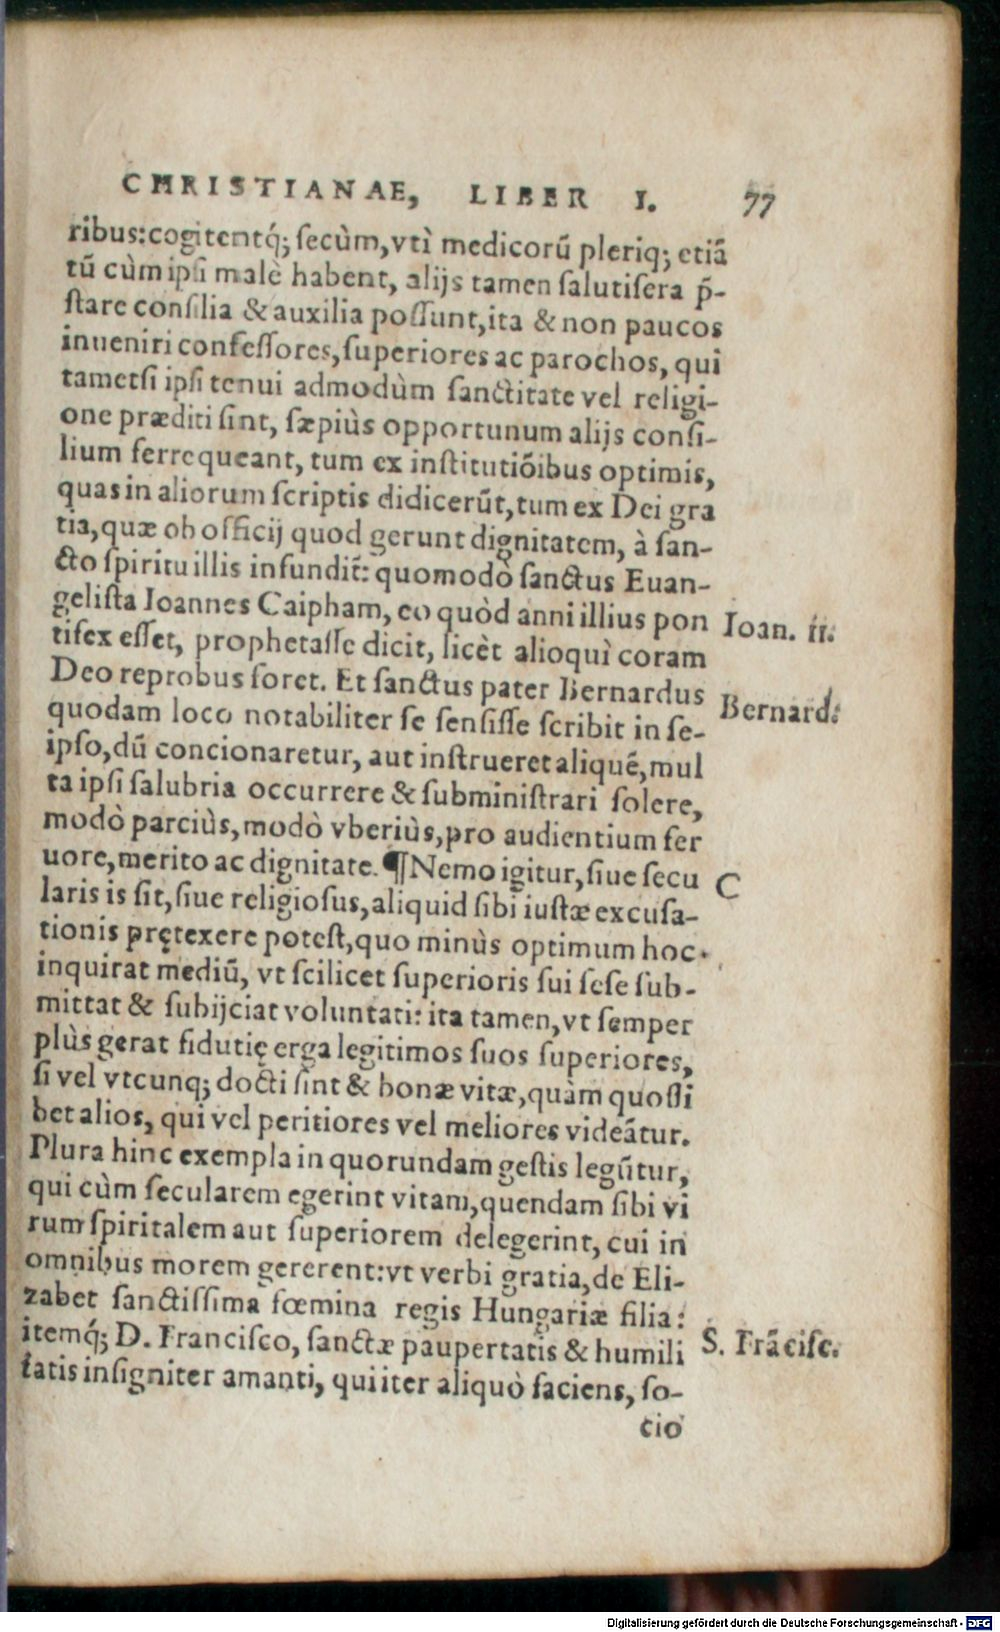 CHRISTIANAE, LIBER I. 77
ribus: cogitentq́; secùm, vtì medicorũ pleriq; etiã
tũ cùm ipsi malè habent, alijs tamen salutifera p̃-
stare consilia & auxilia possunt, ita & non paucos
inueniri confessores, superiores ac parochos, qui
tametsi ipsi tenui admodùm sanctitate vel religi-
one præditi sint, sæpiùs opportunum alijs consi-
lium ferre queant, tum ex institutiõibus optimis,
quas in aliorum scriptis didicerũt, tum ex Dei gra
tia, quæ ob officij quod gerunt dignitatem, à san-
cto spiritu illis infundit̃: quomodò sanctus Euan-
gelista Ioannes Caipham, eo quòd anni illius pon
Ioan. 11.
tifex esset, prophetasse dicit, licèt alioquì coram
Deo reprobus foret. Et sanctus pater Bernardus
Bernard.
quodam loco notabiliter se sensisse scribit in se-
ipso, dũ concionaretur, aut instrueret aliquẽ, mul
ta ipsi salubria occurrere & subministrari solere,
modò parciùs, modò vberiùs, pro audientium fer
uore, merito ac dignitate. ¶ Nemo igitur, siue secu
C
laris is sit, siue religiosus, aliquid sibi iustæ excusa-
tionis prętexere potest, quo minùs optimum hoc
inquirat mediũ, vt scilicet superioris sui sese sub-
mittat & subijciat voluntati: ita tamen, vt semper
plùs gerat fidutię erga legitimos suos superiores,
si vel vtcunq; docti sint & bonæ vitæ, quàm quossi
bet alios, qui vel peritiores vel meliores videãtur.
Plura hinc exempla in quorundam gestis legũtur,
qui cùm secularem egerint vitam, quendam sibi vi
rum spiritalem aut superiorem delegerint, cui in
omnibus morem gererent: vt verbi gratia, de Eli-
zabet sanctissima fœmina regis Hungariæ filia:
itemq́; D. Francisco, sanctæ paupertatis & humili
S. Frãcisc.
tatis insigniter amanti, qui iter aliquò faciens, so-
cio
Digitalisierung gefördert durch die Deutsche Forschungsgemeinschaft - DFG